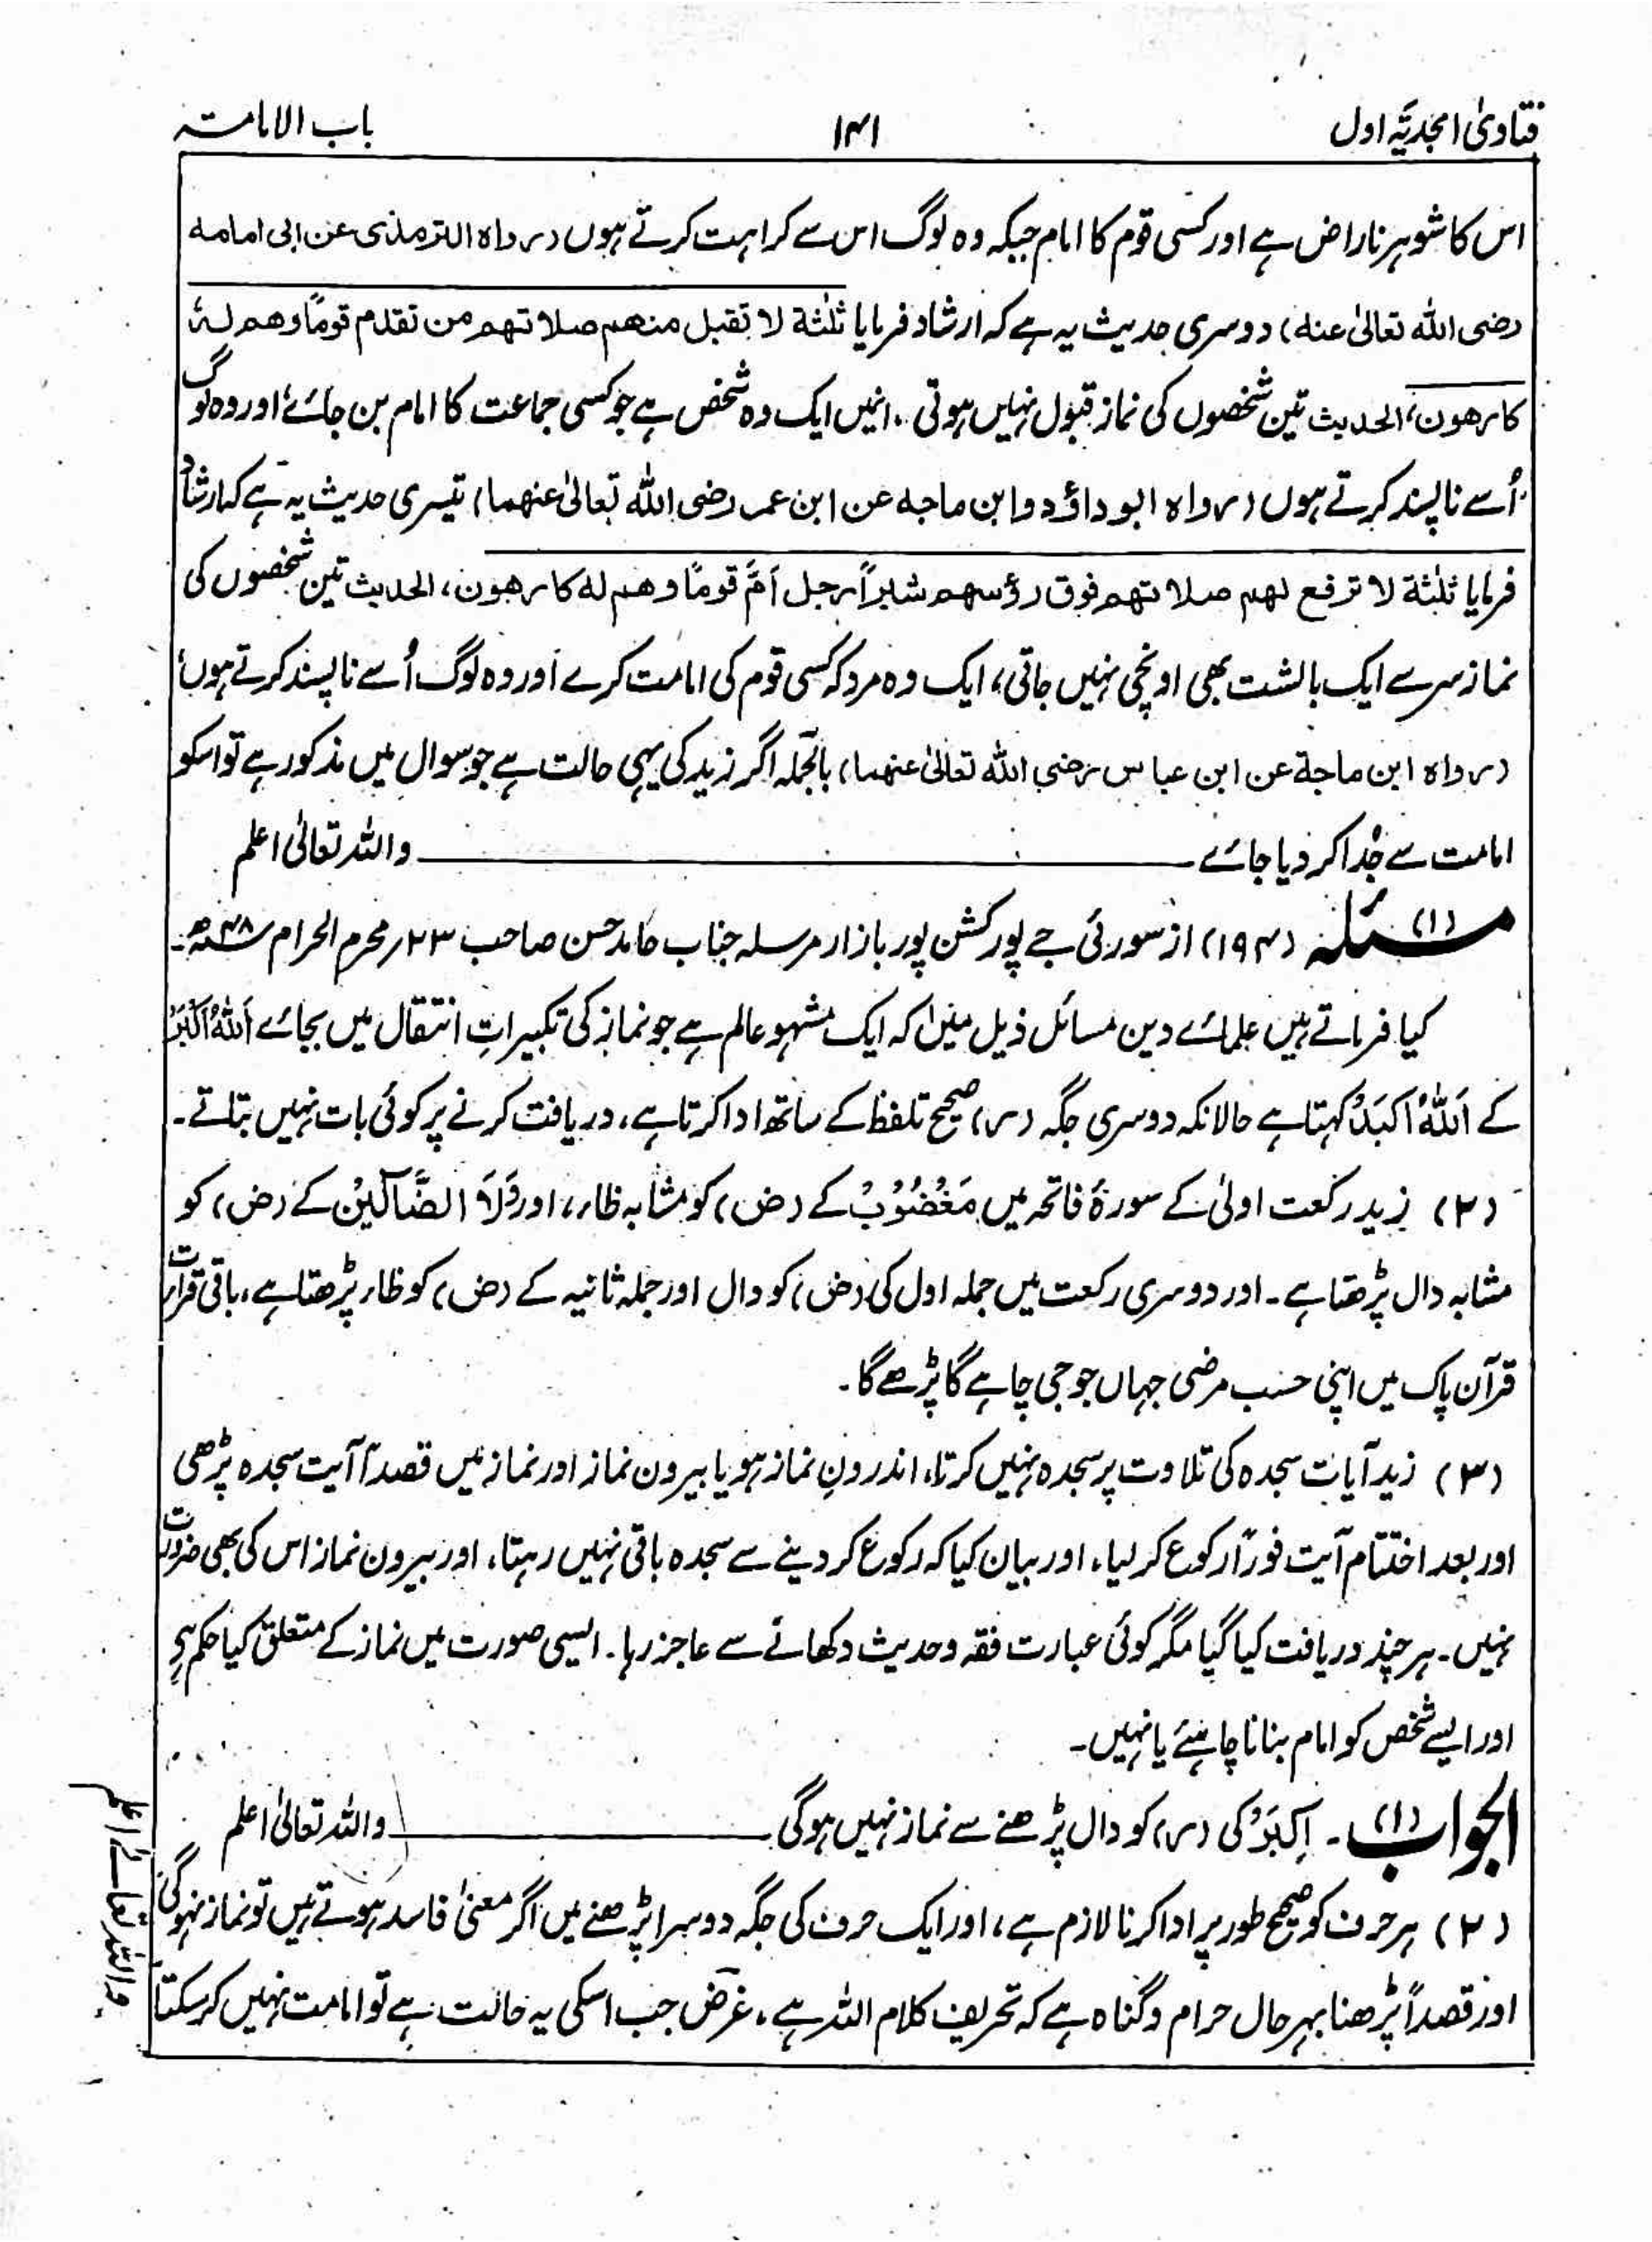 فتاویٰ امجدیّہ اول
۱۴۱
باب الامامتہ
اس کا شوہر ناراض ہے اور کسی قوم کا امام جبکہ وہ لوگ اس سے کراہت کرتے ہوں (رواہ الترمذی عن ابی امامہ
رضی اللہ تعالیٰ عنہ) دوسری حدیث یہ ہے کہ ارشاد فرمایا ثلٰثۃ لا تقبل منھم صلاتھم من تقدم قومًا وھم لہٗ
کارھون، الحدیث تین شخصوں کی نماز قبول نہیں ہوتی۔ انمیں ایک وہ شخص ہے جو کسی جماعت کا امام بن جائے اور وہ لوگ
اُسے ناپسند کرتے ہوں (رواہ ابو داؤد وابن ماجہ عن ابن عمر رضی اللہ تعالیٰ عنھما) تیسری حدیث یہ ہے کہ ارشاد
فرمایا ثلٰثۃ لا ترفع لھم صلاتھم فوق رؤسھم شبراً رجل اَمَّ قومًا وھم لہ کارھون، الحدیث تین شخصوں کی
نماز سر سے ایک بالشت بھی اونچی نہیں جاتی، ایک وہ مرد کہ کسی قوم کی امامت کرے اور وہ لوگ اُسے ناپسند کرتے ہوں
(رواہ ابن ماجۃ عن ابن عباس رضی اللہ تعالیٰ عنھما) بالجملہ اگر زید کی یہی حالت ہے جو سوال میں مذکور ہے تو اسکو
امامت سے جُدا کر دیا جائے ــــــــ واللہ تعالیٰ اعلم
مسئلہ (۱) (۱۹۴) از سورئی جے پور کشن پور بازار مرسلہ جناب حامد حسن صاحب ۲۳؍محرم الحرام ۴۸ھ۔
کیا فرماتے ہیں علمائے دین مسائل ذیل میں کہ ایک مشہو عالم ہے جو نماز کی تکبیراتِ انتقال میں بجائے اَللّٰہُ اَکْبَرُ
کے اَللّٰہُ اَکبَدُ کہتا ہے حالانکہ دوسری جگہ (ر) صحیح تلفظ کے ساتھ ادا کرتا ہے، دریافت کرنے پر کوئی بات نہیں بتاتے۔
(۲) زید رکعت اولیٰ کے سورۂ فاتحہ میں مَغْضُوْبْ کے (ض) کو مشابہ ظاء، اور وَلَا الضَّآلِّیْنْ کے (ض) کو
مشابہ دال پڑھتا ہے۔ اور دوسری رکعت میں جملہ اول کی (ض) کو دال اور جملہ ثانیہ کے (ض) کو ظاء پڑھتا ہے، باقی قرارت
قرآن پاک میں اپنی حسب مرضی جہاں جو جی چاہے گا پڑھے گا۔
(۳) زید آیات سجدہ کی تلاوت پر سجدہ نہیں کرتا، اندرونِ نماز ہو یا بیرون نماز اور نماز میں قصداً آیت سجدہ پڑھی
اور بعد اختتام آیت فوراً رکوع کر لیا، اور بیان کیا کہ رکوع کر دینے سے سجدہ باقی نہیں رہتا، اور بیرون نماز اس کی بھی ضرورت
نہیں۔ ہر چند دریافت کیا گیا مگر کوئی عبارت فقہ وحدیث دکھانے سے عاجز رہا۔ ایسی صورت میں نماز کے متعلق کیا حکم ہے
اور ایسے شخص کو امام بنانا چاہئے یا نہیں۔
الجواب (۱)۔ اکبَرُ کی (ر) کو دال پڑھنے سے نماز نہیں ہوگی ــــــــ واللہ تعالیٰ اعلم
(۲) ہر حرف کو صحیح طور پر ادا کرنا لازم ہے، اور ایک حرف کی جگہ دوسرا پڑھنے میں اگر معنیٰ فاسد ہوتے ہیں تو نماز نہوگی
اور قصداً پڑھنا بہر حال حرام و گناہ ہے کہ تحریف کلام اللہ ہے، غرض جب اسکی یہ حالت ہے تو امامت نہیں کر سکتا
واللہ تعالےٰ اعلم